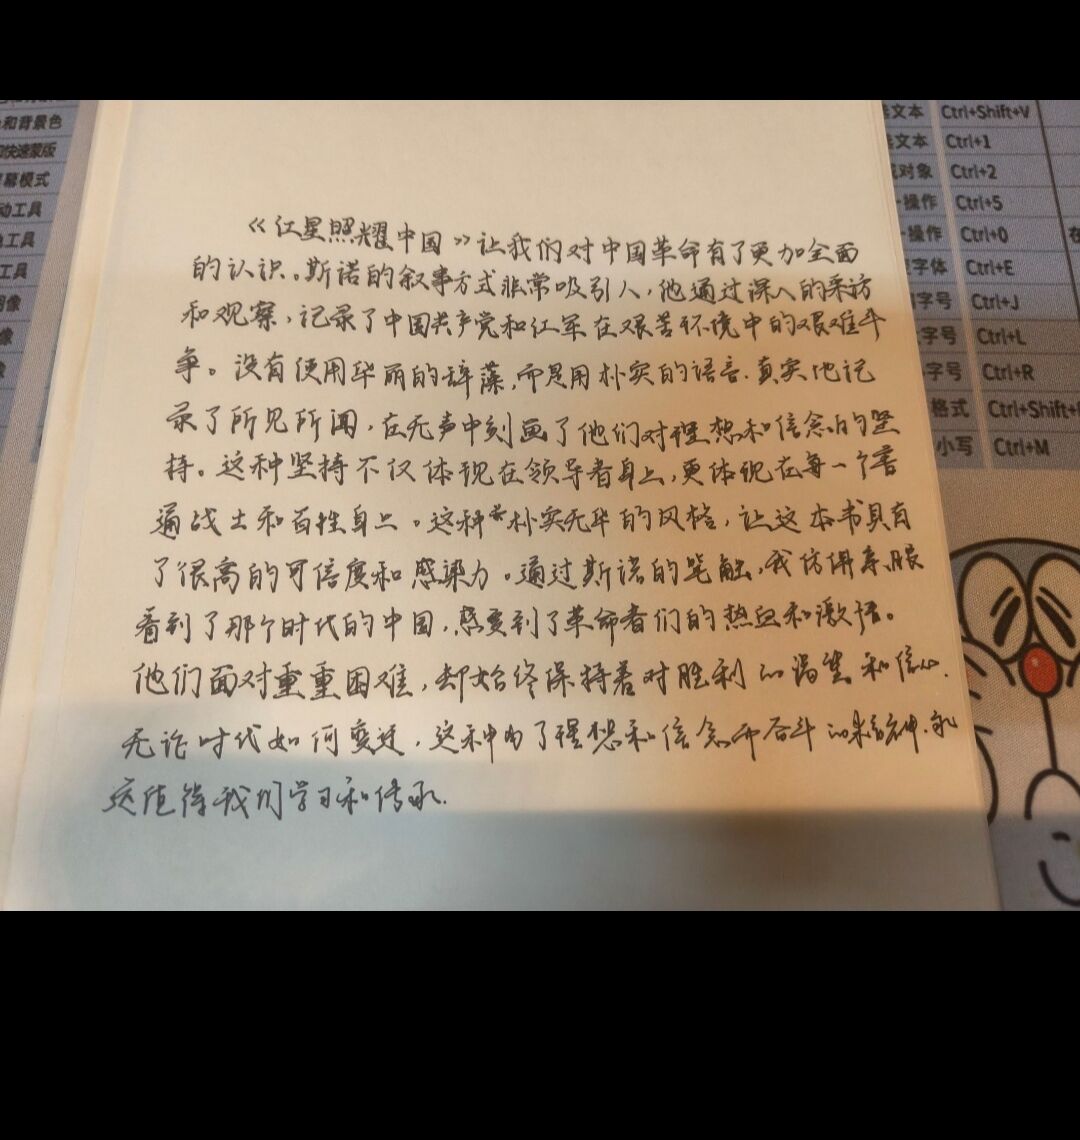 《红星照耀中国》让我们对中国革命有了更加全面
的认识。斯诺的叙事方式非常吸引人，他通过深入的采访
和观察，记录了中国共产党和红军在艰苦环境中的艰难斗
争。没有使用华丽的辞藻，而是用朴实的语言.真实地记
录了所见所闻，在无声中刻画了他们对理想和信念的坚
持。这种坚持不仅体现在领导者身上，更体现在每一个普
通战士和百姓身上。这种朴实无华的风格，让这本书具有
了很高的可信度和感染力。通过斯诺的笔触，我仿佛亲眼
看到了那个时代的中国，感受到了革命者们的热血和激情。
他们面对重重困难，却始终保持着对胜利的渴望和信心.
无论时代如何变迁，这种为了理想和信念而奋斗的精神.永
远值得我们学习和传承.
和背景色
和快速蒙版
屏幕模式
动工具
工具
工具
图像
像
文本 Ctrl+Shift+V
文本 Ctrl+1
对象 Ctrl+2
操作 Ctrl+5
操作 Ctrl+0
字体 Ctrl+E
字号 Ctrl+J
字号 Ctrl+L
字号 Ctrl+R
格式 Ctrl+Shift+
小写 Ctrl+M
在